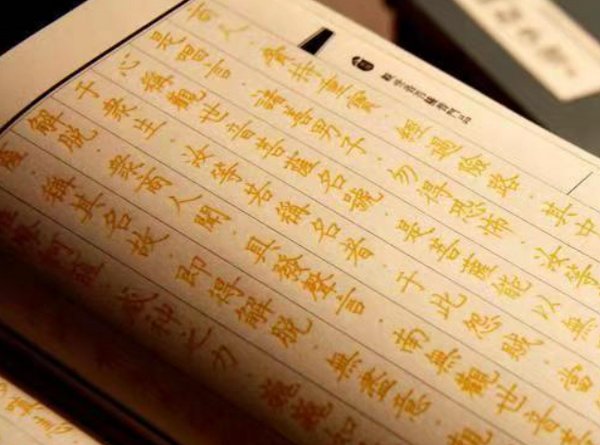 普門品
商人。齎持重寶。經過險路。其中
是唱言。諸善男子。勿得恐怖。汝等
心稱觀世音菩薩名號。是菩薩能以無
于衆生。汝等若稱名者。于此怨賊。當
解脫。衆商人聞。具發聲言。南無觀世音菩
薩。稱其名故。即得解脫。無盡意。觀
訶薩。威神之力。巍巍如